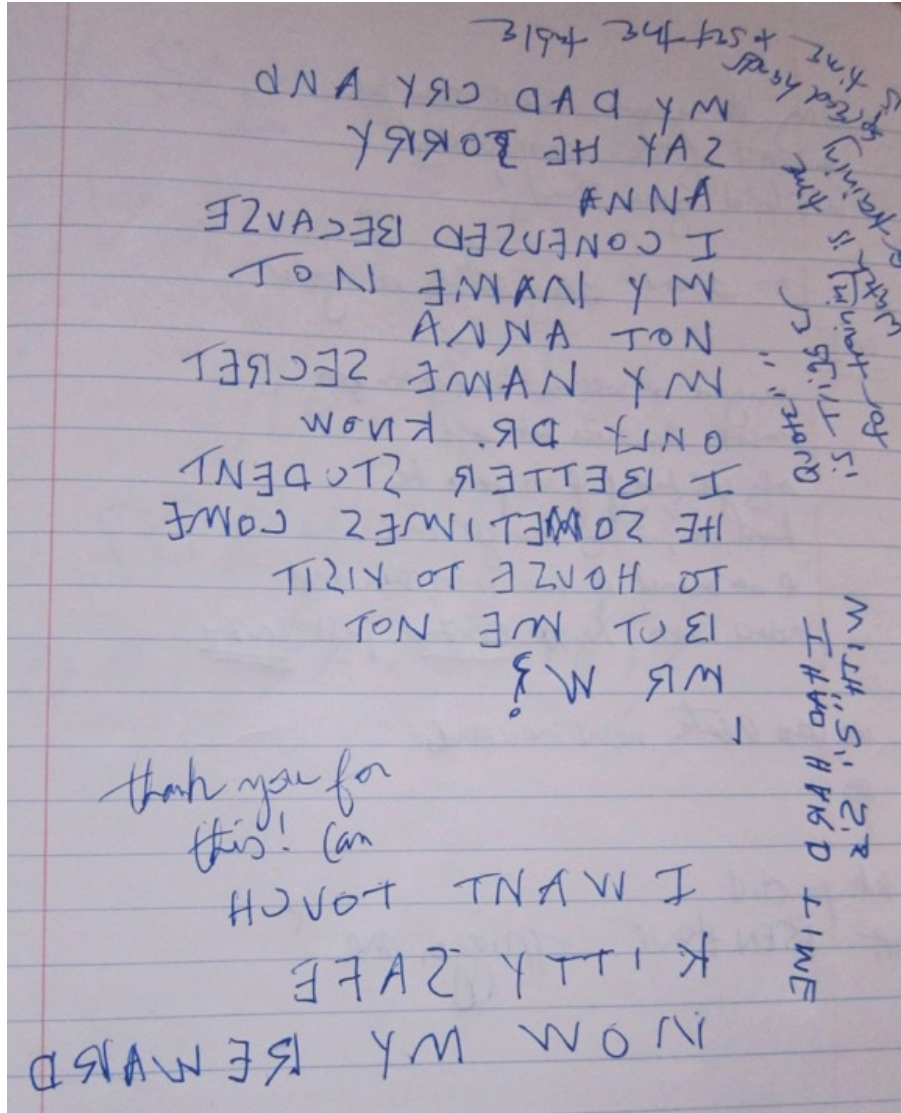 + set the table
MY DAD CRY AND
SAY HE SORRY
ANNA
I CONFUSED BECAUSE
MY NAME NOT
NOT ANNA
MY NAME SECRET
ONLY DR. KNOW
I BETTER STUDENT
HE SOMETIMES COME
TO HOUSE TO VISIT
BUT ME NOT
MR M?
thank you for
this! Can
I WANT TOUCH
KITTY SAFE
NOW MY REWARD
I HAD HARD TIME
WITH "S"